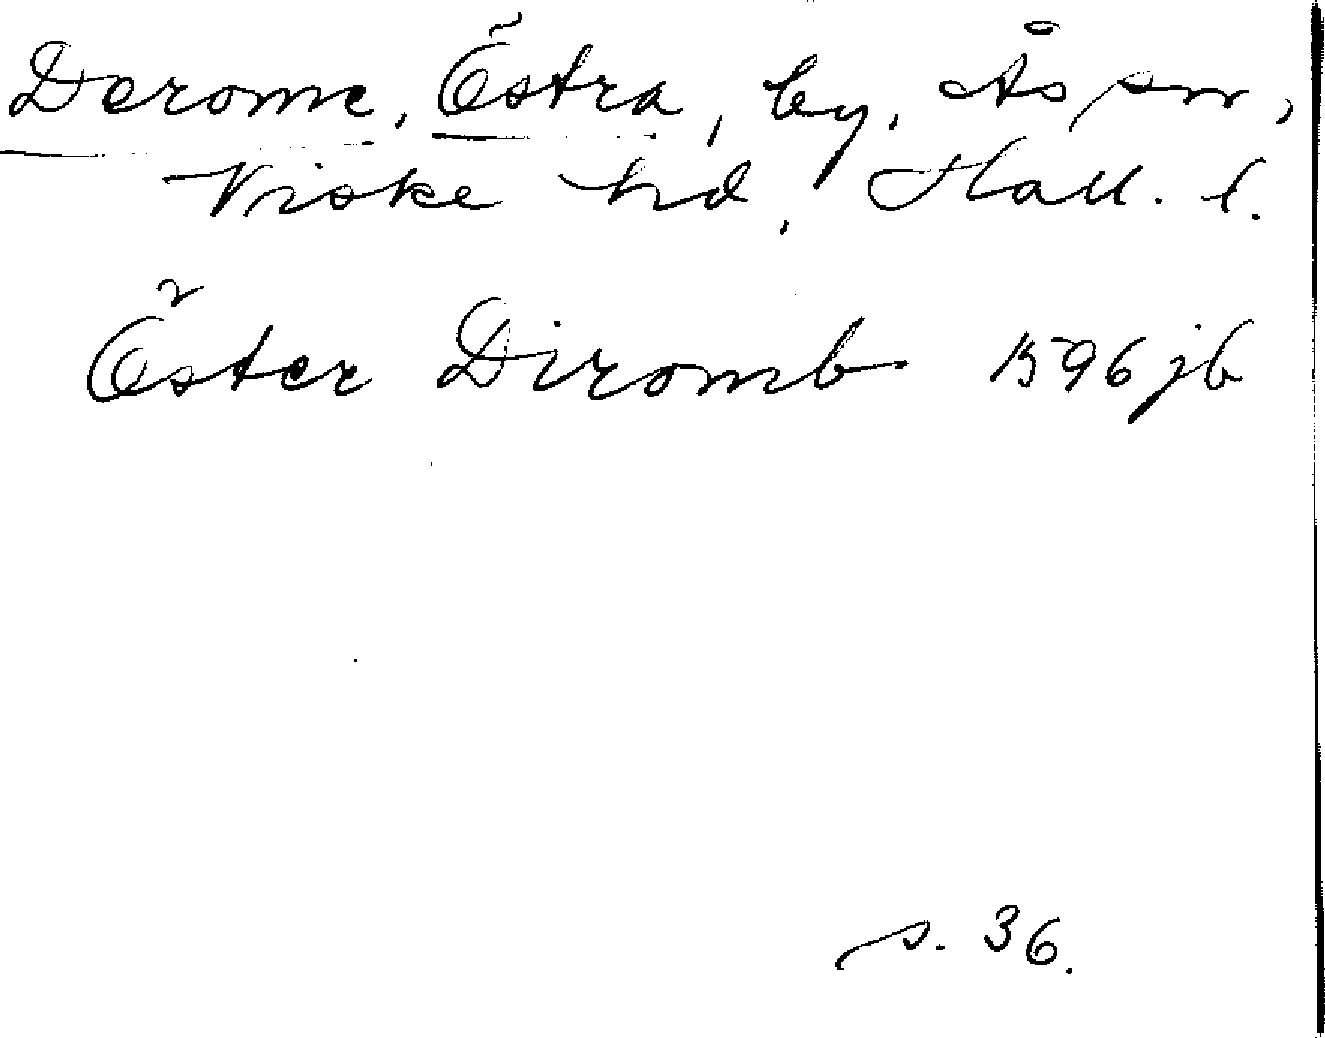 Derome, Östra, by, Ås sn,
Viske hd, Hall. l.
Öster Diromb 1596 jb
s. 36.